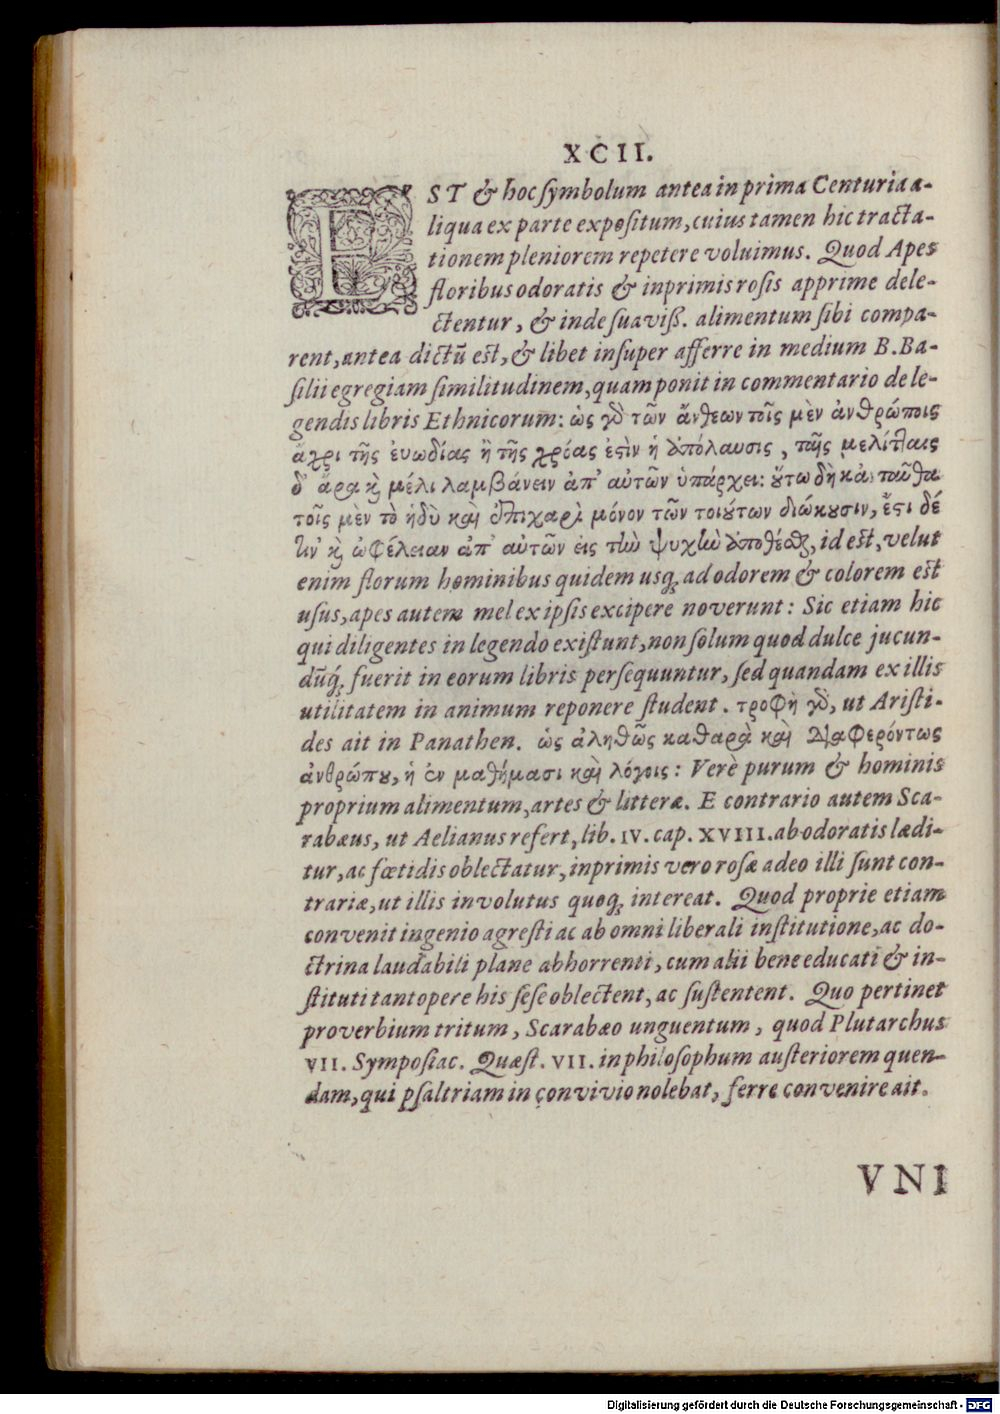 XCII.
EST & hoc symbolum antea in prima Centuria a-
liqua ex parte expositum, cuius tamen hic tracta-
tionem pleniorem repetere voluimus. Quod Apes
floribus odoratis & inprimis rosis apprime dele-
ctentur, & inde suaviß. alimentum sibi compa-
rent, antea dictũ est, & libet insuper afferre in medium B. Ba-
silii egregiam similitudinem, quam ponit in commentario de le-
gendis libris Ethnicorum: ὡς γὸ τῶν ἄνθεων τοῖς μὲν ἀνθρώποις
ἄχρι τῆς ἐυωδίας ἢ τῆς χρόας ἐςὶν ἡ ἀπόλαυσις, ταῖς μελίτταις
δ' ἄρα κỳ μέλι λαμβάνειν ἀπ' αὐτῶν ὑπάρχει: ȣ̓́τω δὴ κἀνταῦθα
τοῖς μὲν τὸ ἡδὺ καὶ ἐπιχαρὶ μόνον τῶν τοιȣ́των διώκȣσιν, ἔςι δέ
τιν' κỳ ὠφέλειαν ἀπ' αὐτῶν εις τὴν ψυχὴν ἀποθέσθαι, id est, velut
enim florum hominibus quidem usq; ad odorem & colorem est
usus, apes autem mel ex ipsis excipere noverunt: Sic etiam hic
qui diligentes in legendo existunt, non solum quod dulce jucun-
dũq́; fuerit in eorum libris persequuntur, sed quandam ex illis
utilitatem in animum reponere student. τροφὴ γὸ, ut Aristi-
des ait in Panathen. ὡς ἀληθῶς καθαρὰ καὶ διαφερόντως
ἀνθρώπȣ, ἡ ἐν μαθήμασι καὶ λόγοις: Verè purum & hominis
proprium alimentum, artes & litteræ. E contrario autem Sca-
rabæus, ut Aelianus refert, lib. IV. cap. XVIII. ab odoratis lædi-
tur, ac fœtidis oblectatur, inprimis vero rosæ adeo illi sunt con-
trariæ, ut illis involutus quoq; intereat. Quod proprie etiam
convenit ingenio agresti ac ab omni liberali institutione, ac do-
ctrina laudabili plane abhorrenti, cum alii bene educati & in-
stituti tantopere his sese oblectent, ac sustentent. Quo pertinet
proverbium tritum, Scarabæo unguentum, quod Plutarchus
VII. Symposiac. Quæst. VII. in philosophum austeriorem quen-
dam, qui psaltriam in convivio nolebat, ferre convenire ait.
VNI
Digitalisierung gefördert durch die Deutsche Forschungsgemeinschaft - DFG